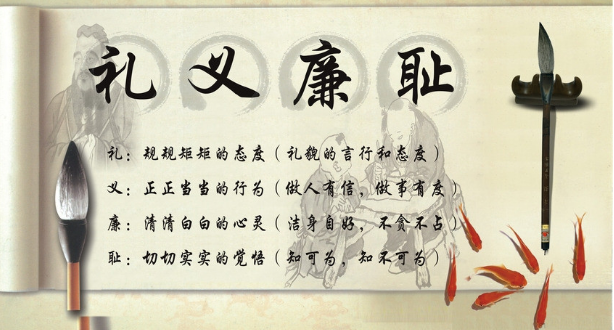 礼义廉耻
礼：规规矩矩的态度（礼貌的言行和态度）
义：正正当当的行为（做人有信，做事有度）
廉：清清白白的心灵（洁身自好，不贪不占）
耻：切切实实的觉悟（知可为，知不可为）